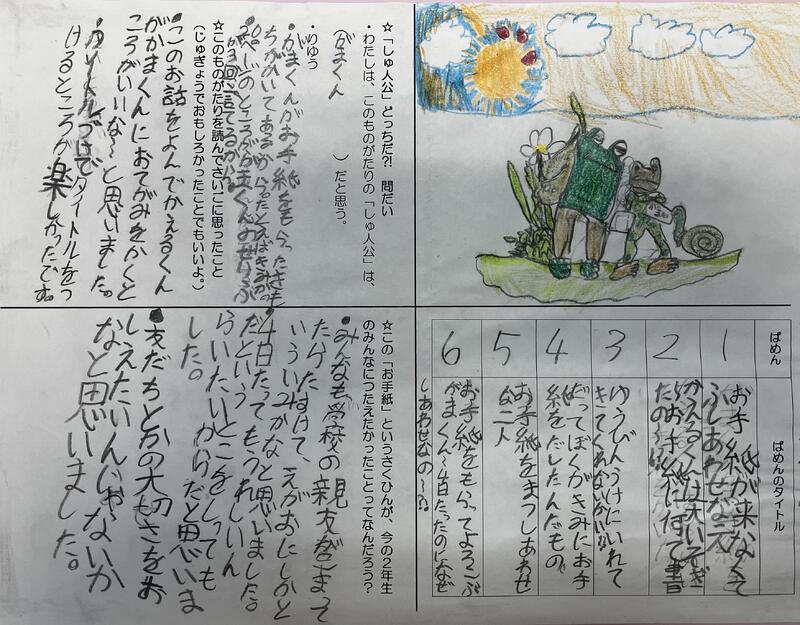 ☆「しゅ人公」どっちだ?! 問だい
・わたしは、このものがたりの「しゅ人公」は、
(がまくん)だと思う。
・りゆう
・がまくんがお手紙をもらったきも
ちがかいてあるから。たとえばきみが
のところががまくんのせりふ
が3回言てるから。
☆このものがたりを読んでさいごに思ったこと
(じゅぎょうでおもしろかったことでもいいよ。)
・このお話をよんでかえるくん
ががまくんにおてがみをかくと
ころがいいな〜と思いました。
・タイトルづけでタイトルをつ
けるところが楽しかったです。
ばめん
ばめんのタイトル
1
お手紙が来なくて
ふしあわせな二人
2
かえるくんは大いそぎ
お手紙に何て書
たの〜!!
3
ゆうびんうけにいれて
きてくれないかい!!
4
だってぼくがきみにお手
紙をだしたんだもの
5
お手紙をまつしあわせ
な二人
6
お手紙をもらってよろこぶ
がまくん〜4日たったのになぜ
しあわせなの〜?!
☆この「お手紙」というさくひんが、今の2年生
のみんなにつたえたかったことってなんだろう?
・みんなも学校の親友がこまって
たらたすけて、えがおにしかと
いういみかなと思いました。
・4日たってもうれしいん
だという
らいたいとこをしっても
らいたいからだと思いま
した。
・友だちとかの大切さをお
しえたいんじゃないか
なと思いました。